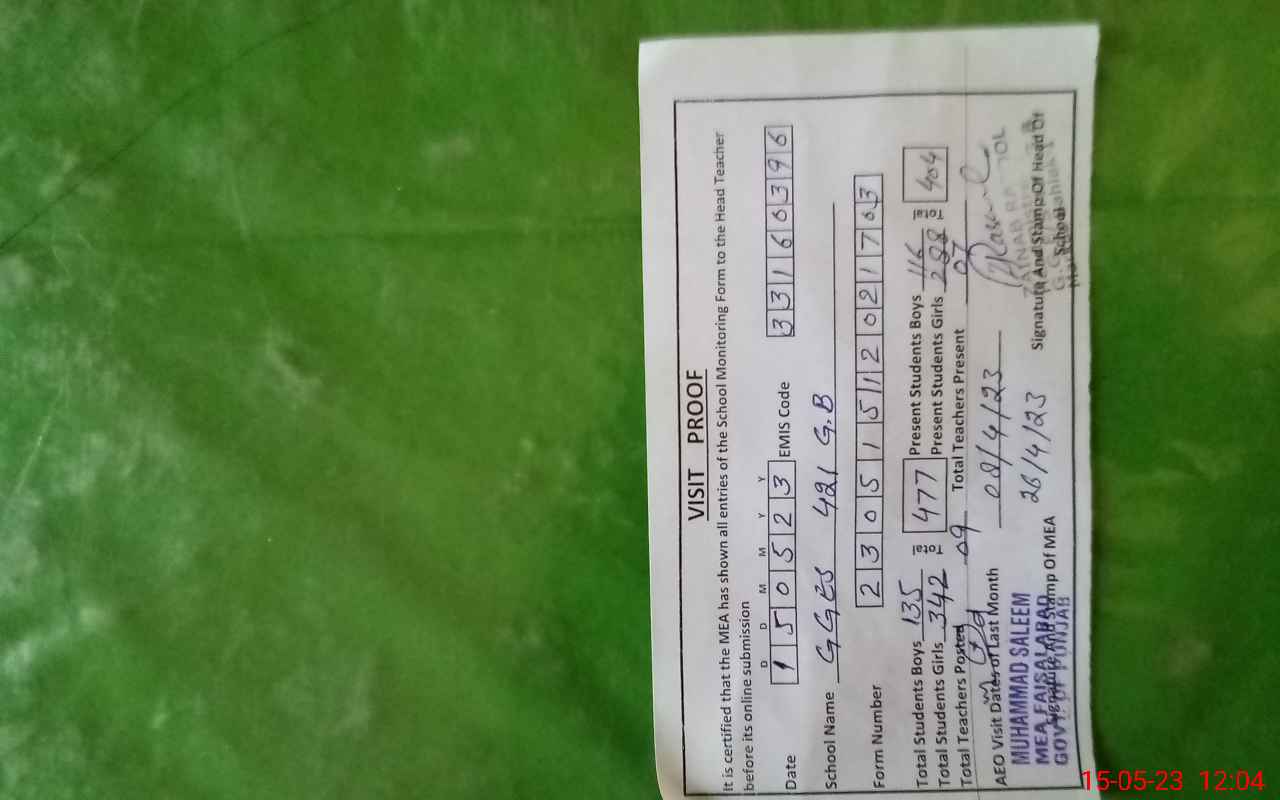 VISIT PROOF
It is certified that the MEA has shown all entries of the School Monitoring Form to the Head Teacher
before its online submission
D D M M Y Y
Date 150523 EMIS Code 33160396
School Name GGES 421 G.B
Form Number 230515112021703
Total Students Boys 135 Total 477 Present Students Boys 116 Total 404
Total Students Girls 342 Present Students Girls 288
Total Teachers Posted 09 Total Teachers Present 07
AEO Visit Dates of Last Month 08/4/23
26/4/23
MUHAMMAD SALEEM
MEA FAISALABAD
GOVT. OF PUNJAB
Signature And Stamp Of MEA
Signature And Stamp Of Head Of
School
15-05-23 12:04